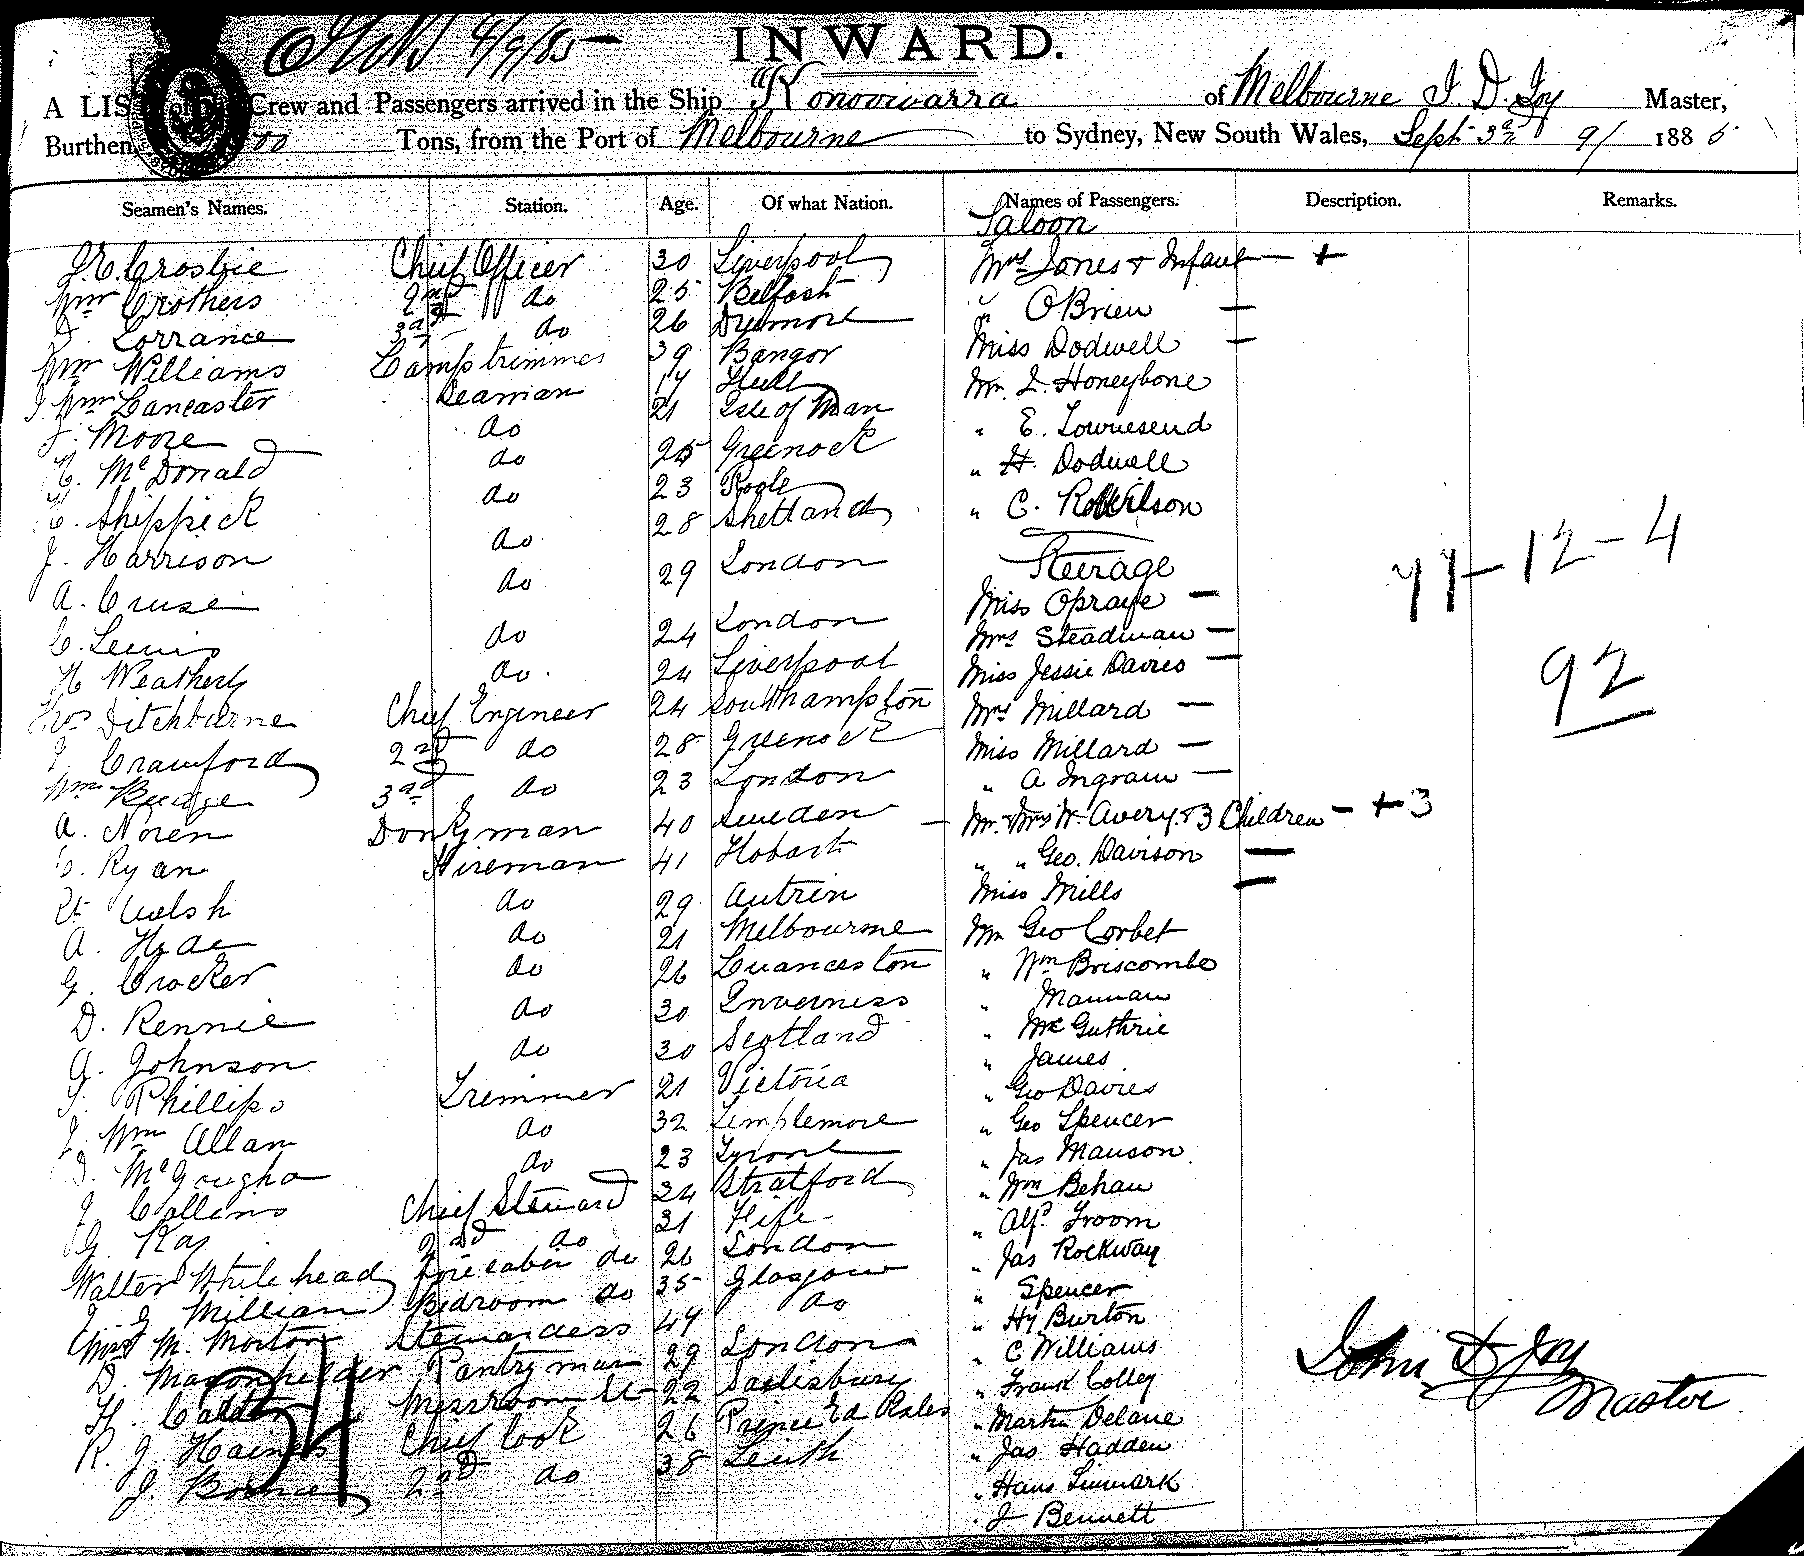 4/9/85 INWARD.
A LIS Crew and Passengers arrived in the Ship "Konoowarra of Melbourne J. D. Joy Master,
Burthen 00 Tons, from the Port of Melbourne to Sydney, New South Wales, Sept 3rd 9/ 1885
Seamen's Names. Station. Age. Of what Nation. Names of Passengers. Description. Remarks.
Saloon
J. E. Crosbie Chief Officer 30 Liverpool Mrs Jones & Infant — +
Wm Crothers 2nd do 25 Belfast " O'Brien —
D. Lorrance 3rd do 26 Miss Dodwell —
Wm Williams Lamptrimmer 39 Bangor Mr. J. Honeybone
J. Wm Lancaster Seaman 17 Hull " E. Townesend
J. Moore do 21 Isle of Man " H. Dodwell
McDonald do 25 Greenock " C. Wilson
Shippick do 23 Poole Steerage
J. Harrison do 28 Shetland Miss Opraye —
A. Cruse do 29 London Mrs Steadman —
C. Lewis do 24 London Miss Jessie Davies —
H Weatherly do. 24 Liverpool Mrs Millard —
Thos Ditchburne Chief Engineer 24 Southhampton Miss Millard —
J. Crawford 2nd do 28 Greenock " A Ingram —
Wm Budge 3rd do 23 London Mr. & Mrs W. Avery. & 3 Children — + 3
A. Noren Donkyman 40 Sweden " " Geo. Davison —
C. Ryan Fireman 41 Hobart Miss Mills —
Rt Walsh do 29 Autrin Mr Geo Corbet
A. Hyde do 21 Melbourne " Wm Briscombe
G. Crocker do 26 Luanceston " Mannan
D. Rennie do 30 Inverness " McGuthrie
A. Johnson do 30 Scotland " James
Phillips Trimmer 21 Victoria " Geo Davies
J. Wm Allan do 32 Templemore " Geo Spencer
McGougha do 23 Tyrone " Jas Manson
J. Collins Chief Steward 34 Stratford " Wm Behan
G. Kay 2nd do 31 Fife " Alfd Froom
Walter Whitehead Forecabin do 26 London " Jas Rockway
J. J. Millian Bedroom do 35 Glasgow " Spencer
Mrs M. Morton Stewardess 47 do " Hy Burton
D. Pantryman 29 London " C Williams
H. Calder Messroom St 22 Salisbury " Frank Colley
R. J. Haines Chief Cook 26 Prince Ed Isles " Martin Delane
J. 2nd do 38 Leith " Jas Hadden
" Hans
" J Bennett
34
77 – 12 – 4
92
John D Joy
Master